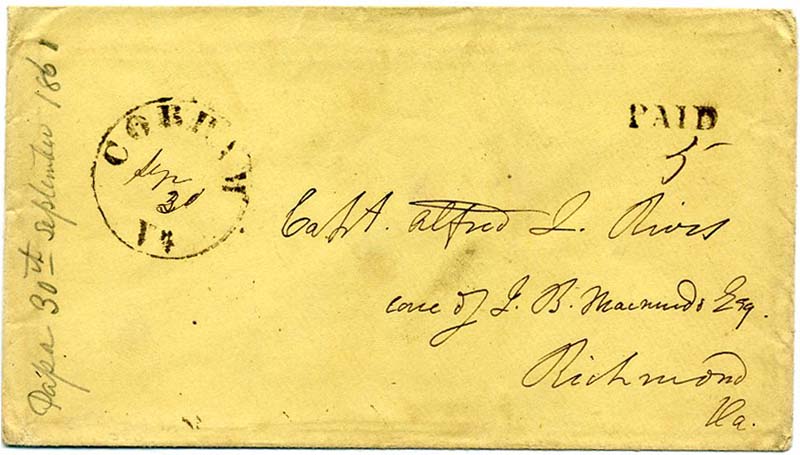 Papa 30th September 1861
COBHAM
Sep
30
Va
PAID
5
Capt. Alfred L. Rives
care of J. B. Macmurdo Esq.
Richmond
Va.